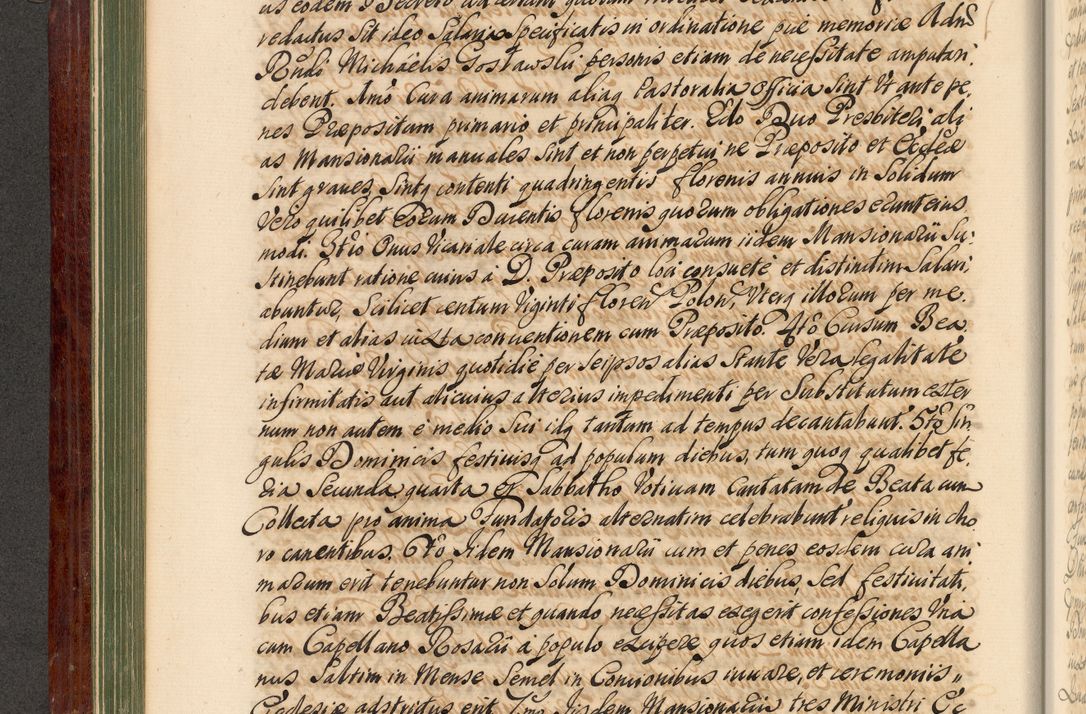 redactus sit ideo Salaria specificatis in ordinatione piæ memoriæ Adm̃
Rñdi Michaëlis Gostawski personis etiam de necessitate amputari
debent. Amõ Cura animarum aliaq Pastoralia officia sint Ut ante pe,
nes Præpositum primario et principaliter. Edo Duo Presbiteri ali
as Mansionarii manuales sint et non perpetui ne Præposito et Ecclæ
sint graves, sintq contenti quadringentis florenis annuis in Solidum
Vero quilibet eorum Ducentis florenis quorum obligationes erunt eius
modi. 3tio Onus Vicariale circa curam animarum iidem Mansionarii Su:
stinebunt ratione cuius à D. Præposito loci consueté et distinctim Salari,
abuntur, Scilicet centum Viginti floreñ Poloñ, Uterq illorum per me
dium et alias iuxta conventionem cum Præposito. 4tõ Cursum Bea
tæ Mariæ Virginis quotidié per Seipsos alias Stante Vera legalitate
infirmitatis aut alicuius alterius impedimenti per Substitutum exter
num non autem é medio Sui idq tantum ad tempus decantabunt. 5tõ Sin
gulis Dominicis festivisq ad populum diebus, tum quoq qualibet fe,
ria Secunda, quarta et Sabbatho Votivam Cantatam de Beata cum
Collecta pro anima Fundatoris alternatim celebrabunt reliquis in cho
ro canentibus. 6tõ Iidem Mansionarii cum et penes eosdem cura ani
marum erit tenebuntur non Solum Dominicis diebus, Sed festivitati,
bus etiam Beatissimæ et quando necessitas exegerit confessiones Una
cum Capellano Rosarii à populo excipere quos etiam idem Capella
nus Saltim in Mense Semel in Concionibus iuvare, et ceremoniis
Ecclesiæ adstrictus erit 7mo Iisdem Mansionariis tres Ministri Ec